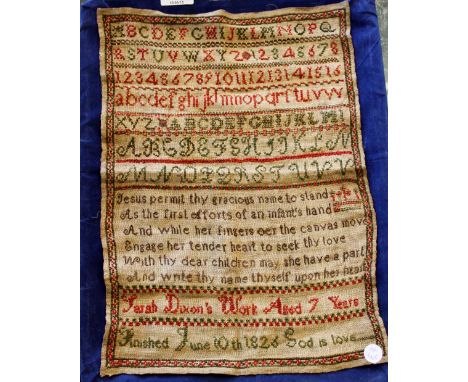 ABCDEFGHIJKLMNOPQ
RSTUVWXYZ012345678
12345678910111213141516
abcdefghijklmnopqrſstuvw
XYZ ABCDEFGHIJKLM
ABCDEFGHIJKLM
MNOPQRSTUVV
Jesus permit thy gracious name to stand
As the first efforts of an infant's hand
And while her fingers oer the canvas move
Engage her tender heart to seek thy love
With thy dear children may she have a part
And write thy name thyself upon her heart
Sarah Dixon's Work Aged 7 Years
Finished June 10th 1826 God is love